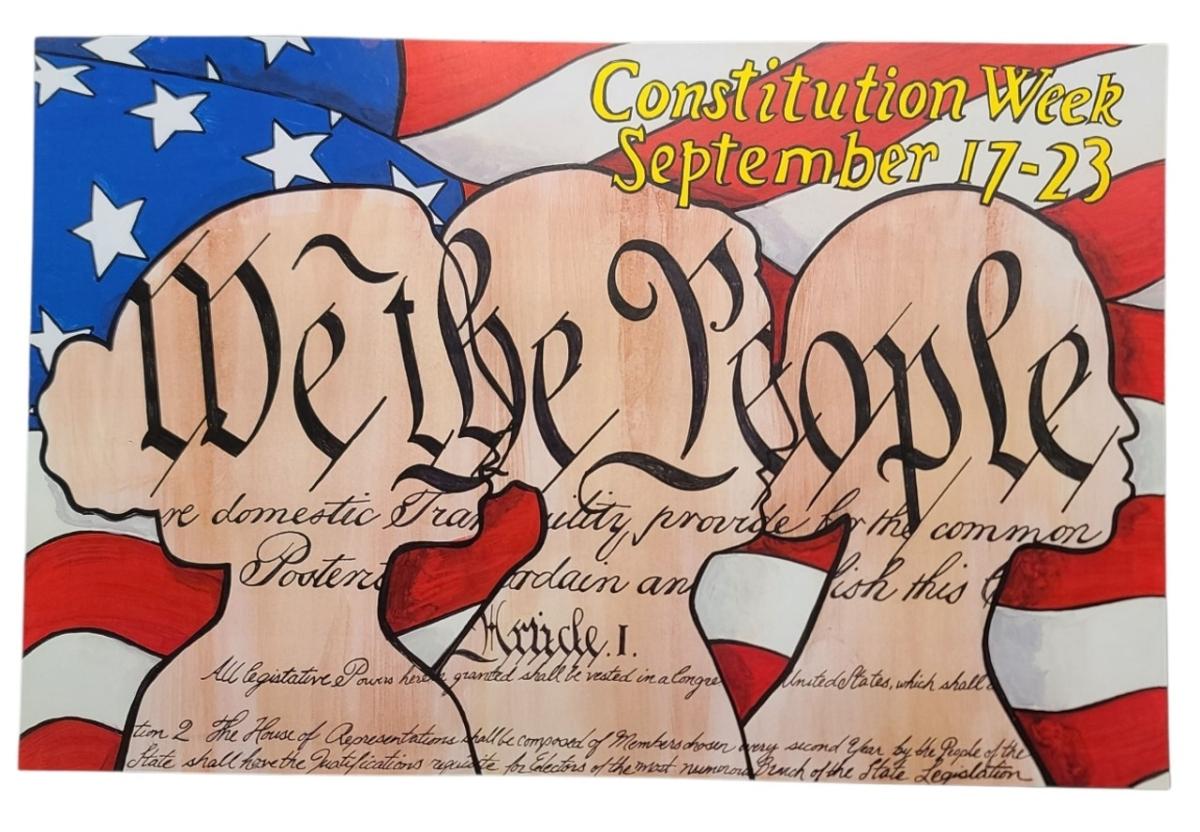 Constitution Week
September 17-23
We the People
re domestic Tran uility, provide for the common
Posterit ordain an lish this
Article. I.
All legistative Powrs herein granted shall be vested in a Congre United States, which shall
tion 2 The House of Representations shall be composed of Members chosen every second Year by the People of the
State shall have the Qualifications requisite for Electors of the most numerous Branch of the State Legislation